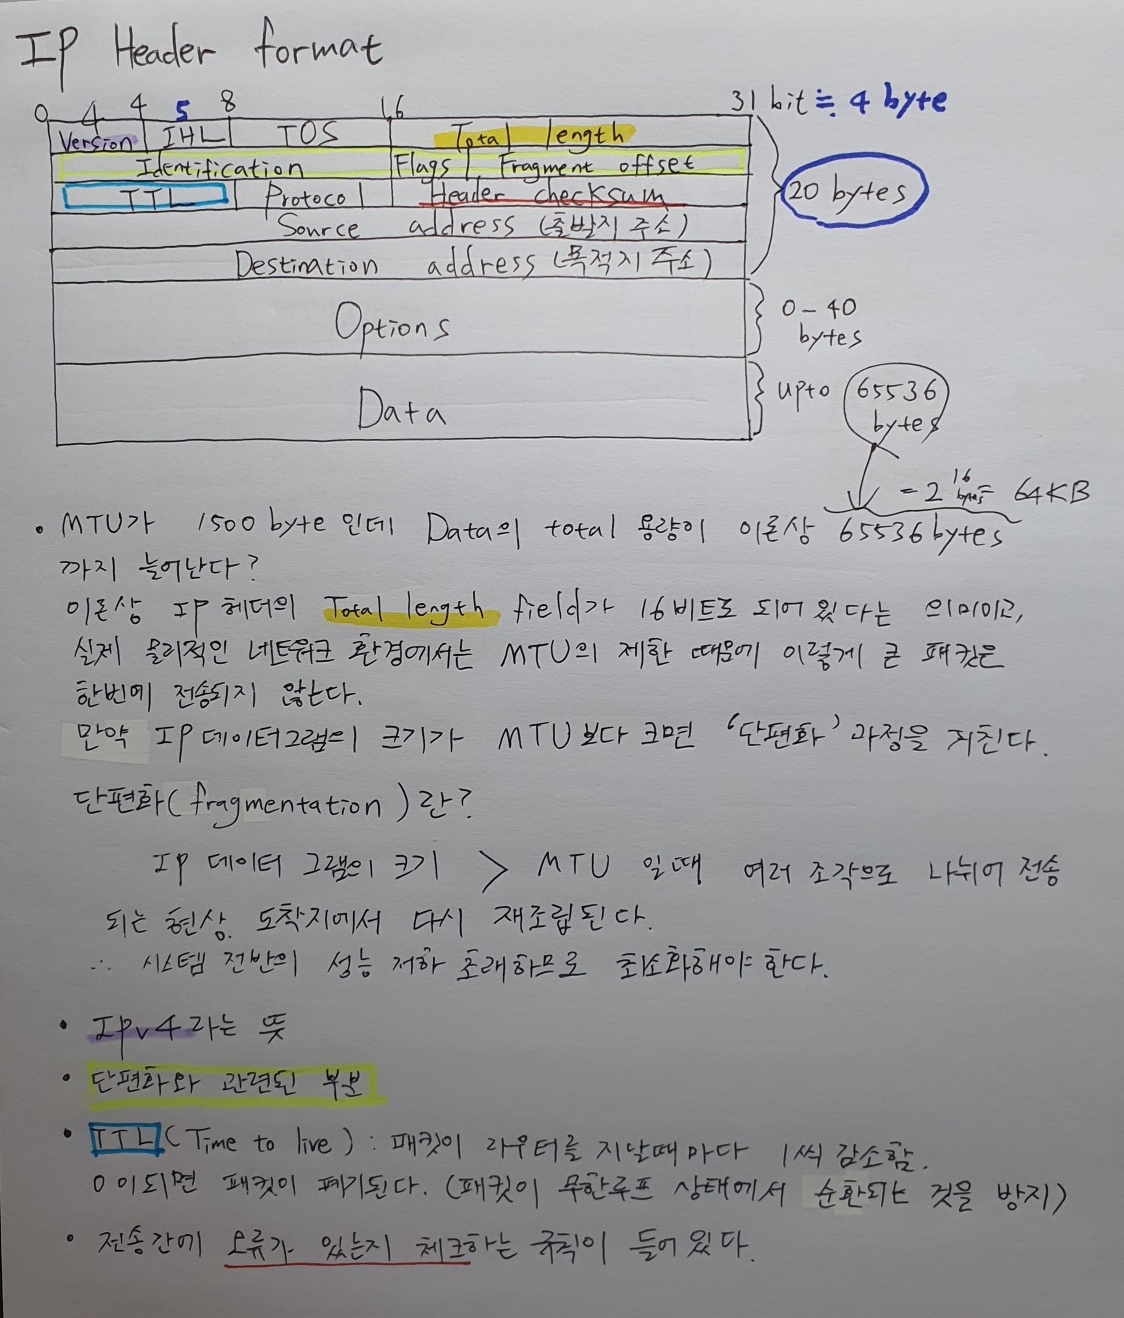 IP Header format
0 4 4 5 8 16 31 bit ≒ 4 byte
Version IHL TOS Total length
Identification Flags Fragment offset
TTL Protocol Header checksum
20 bytes
Source address (출발지 주소)
Destination address (목적지 주소)
Options
0 - 40
bytes
Data
upto 65536
bytes
= 2^16 bytes = 64KB
• MTU가 1500 byte 인데 Data의 total 용량이 이론상 65536 bytes
까지 늘어난다?
이론상 IP 헤더의 Total length field가 16비트로 되어 있다는 의미이고,
실제 물리적인 네트워크 환경에서는 MTU의 제한 때문에 이렇게 큰 패킷은
한번에 전송되지 않는다.
만약 IP 데이터그램의 크기가 MTU 보다 크면 '단편화' 과정을 거친다.
단편화(fragmentation)란?
IP 데이터 그램의 크기 > MTU 일때 여러 조각으로 나뉘어 전송
되는 현상. 도착지에서 다시 재조립된다.
∴ 시스템 전반의 성능 저하 초래하므로 최소화해야 한다.
• IPv4 라는 뜻
• 단편화와 관련된 부분
• TTL (Time to live) : 패킷이 라우터를 지날때 마다 1씩 감소함.
0이되면 패킷이 폐기된다. (패킷이 무한루프 상태에서 순환되는 것을 방지)
• 전송간에 오류가 있는지 체크하는 규칙이 들어 있다.